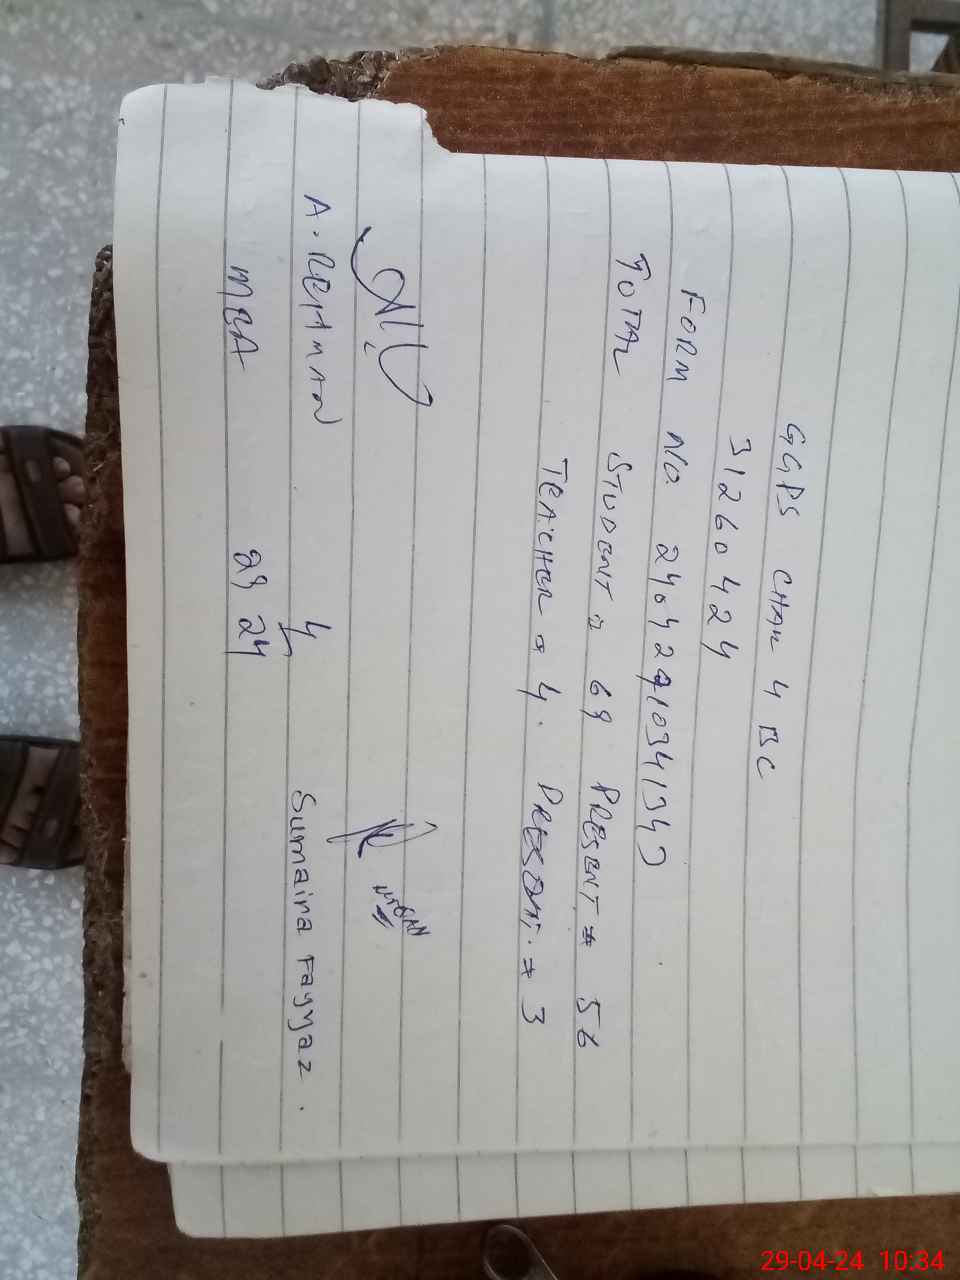 GGPS CHAK 4 BC
31260424
FORM NO. 240429103413
TOTAL STUDENT = 69 PRESENT = 56
TEACHER = 4. PRESENT. = 3
A. REHMAN
Sumaira Fayyaz.
MEA 29 4 24
29-04-24 10:34